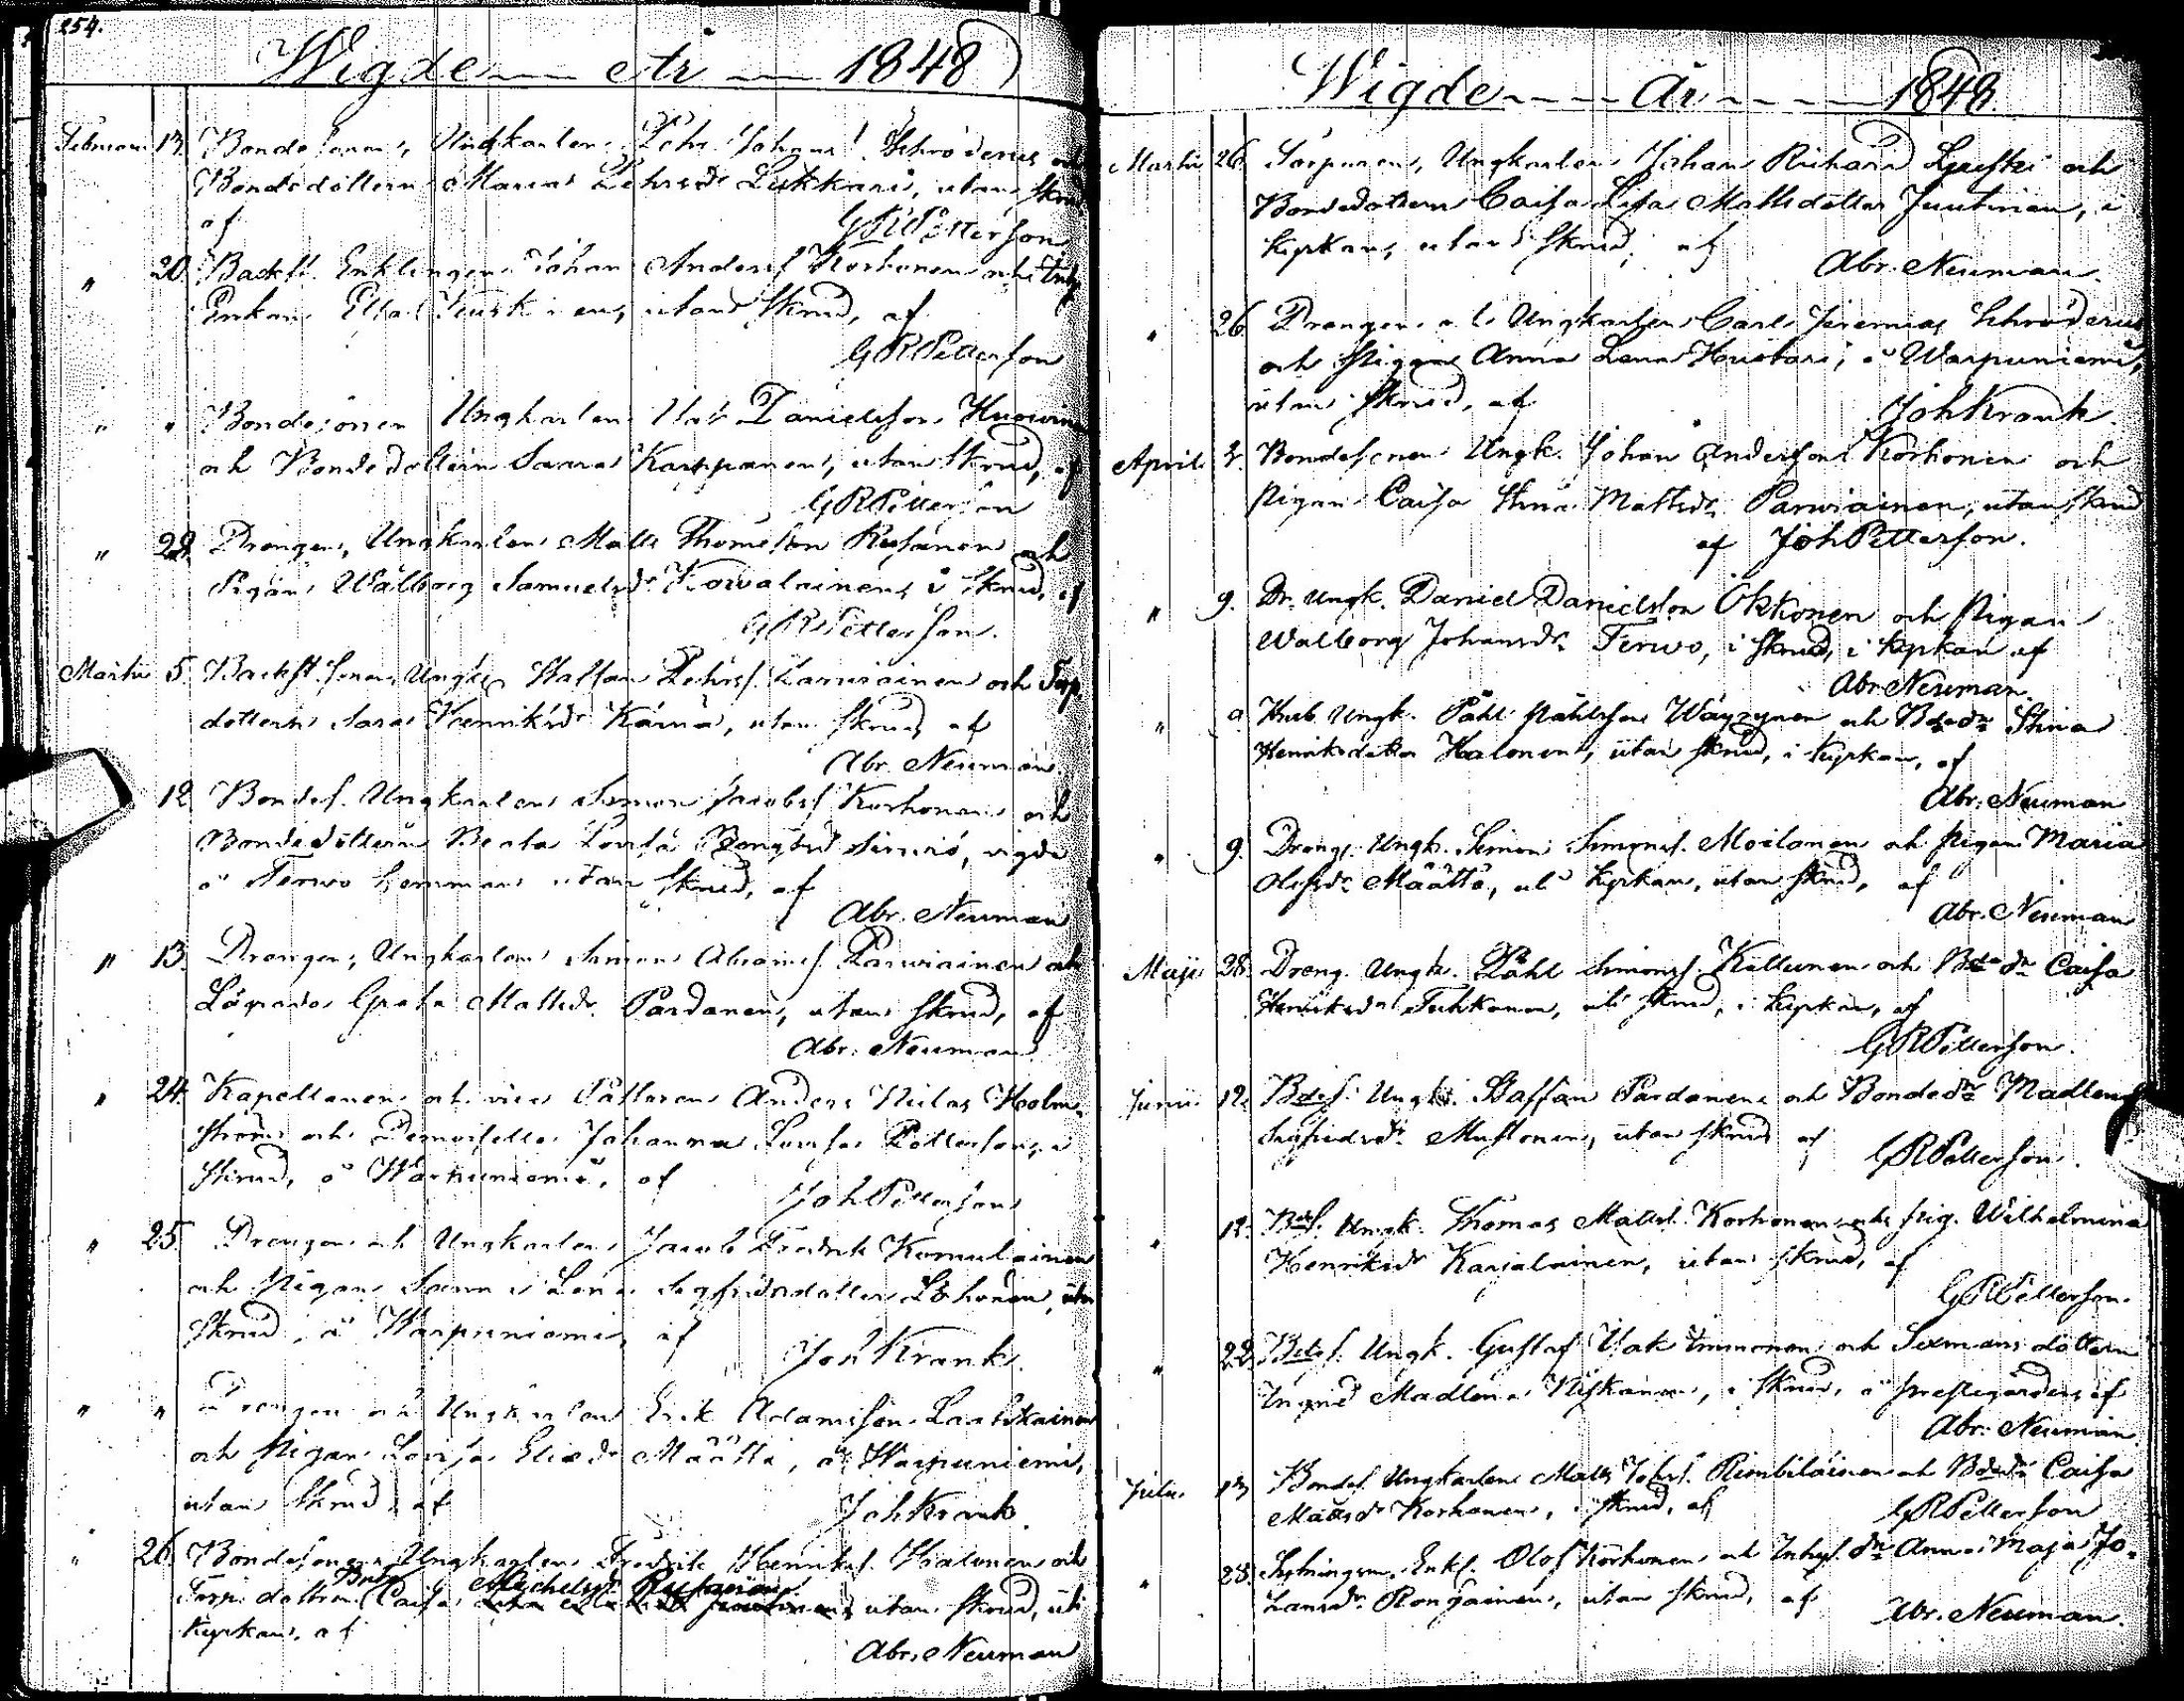 254.
Wigde år 1848
Februari 13. Bondesonen, Ungkarlen Pehr Johans. Schroderus och
Bondedottern Maria Pehrsdr Leskkari, utan Skrud
af
GRPetterson
" 20. Backst. Enklingen Johan Anders. Korhonen och Inh.
Enkan Elsa utan Skrud, af
GRPetterson
" " Bondesonen Ungkarlen Isak Danielsson
och Bondedottern Saara Karppanen, utan Skrud, af
GRPetterson
" 29. Drengen, Ungkarlen Matts Thomeson Rusanen och
Pigan Walborg Samuelsdr Kowalainen, i Skrud, af
GRPetterson.
Martii 5. Backst. sonen Ungk. Staffan Pehrs. och Torp
dottern Sara Henriksdr Kärnä, utan Skrud, af
Abr. Neuman.
12. Bondes. Ungkarlen Simon Jacobs. Korhonen och
Bondedottern Beata Lovisa vigde
å Terwo hemman utan Skrud, af
Abr. Neuman
" 13. Drengen, Ungkarlen Simon Abrams. Parwiainen och
Greta Mattsdr. Pardanen, utan Skrud, af
Abr. Neuman
" 24. Kapellanen och vice Pastoren Anders Niclas Holm-
ström och Demoiselle Johanna Lovisa Petterson, i
Skrud, å Warpuniemi, af
JohPetterson
" 25. Drengen och Ungkarlen Jacob Fredrik Komulainen
och Pigan Sanna Lena Sigfridsdotter Lohonen, utan
Skrud, å Warpuniemi, af
Joh Krank.
" " Drengen och Ungkarlen Erik Adamsson Laatikainen
och Pigan Lovisa Eliædr Määttä, å Warpuniemi,
utan Skrud, af
JohKrank.
" 26. Bondesonen, Ungkarlen Fredrik Henriks. Halonen och
Torp. dottren Caisa Michelsdr Rusanen utan Skrud, uti
Kyrkan, af
Abr. Neuman
Wigde år 1848.
Martii 26. Torparen, Ungkarlen Johan Richard Lyuski och
Bondedottern Caisa Lisa Mattsdotter Juntinen, i
Kyrkan, utan Skrud, af
Abr. Neuman.
" 26. Drengen och Ungkarlen Carl Jeremias Schroderus
och Pigan Anna Lena Huotari, å Warpuniemi,
utan Skrud, af
JohKrank.
April 2. Bondesonen Ungk. Johan Anderson Korhonen och
Pigan Caisa Stina Mattsdr. Parwiainen, utan Skrud
af JohPetterson.
" 9. Dr. Ungk. Daniel Danielsson Okkonen och Pigan
Walborg Johansdr. Terwo, i Skrud, i Kyrkan af
Abr Neuman.
" 9. Ungk. Påhl Påhlsson Wäyrynen och Bdedr Stina
Henriksdotter Halonen, utan Skrud, i Kyrkan, af
Abr. Neuman
" 9. Dreng. Ungk. Simon Simons. Moilanen och Pigan Maria
Olofsdr. Määttä, uti Kyrkan, utan Skrud, af
Abr. Neuman
Maji 28. Dreng. Ungk. Påhl Simons. Kellunen och Bdedr Caisa
Henriksdr Tuhkanen, uti Skrud, i Kyrkan, af
GRPetterson.
Junii 12. Bdes. Ungk. Staffan Pardanen och Bondedr Madlena
Sigfridsdr. Mustonen, utan Skrud af
GRPetterson.
" 12. Bdes. Ungk. Thomas Matts. Korhonen och Pig. Wilhelmina
Henriksdr Karjalainen, utan Skrud, af
GRPetterson.
" 22. Bdes. Ungk. Gustaf Isak Immonen och Sexmans dottern
Ingrid Madlena Niskanen, i Skrud, å Prestegården, af
Abr. Neuman.
Julii Bondes. Ungkarlen Matts Johs. Rimbiläinen och Bdedr Caisa
Mattsdr Korhonen, i Skrud, af GRPetterson
" 23. Enkl. Olof Korhonen och Inhys. dr Anna Maja Jo-
hansdr. Rongainen, utan Skrud, af Abr. Neuman.